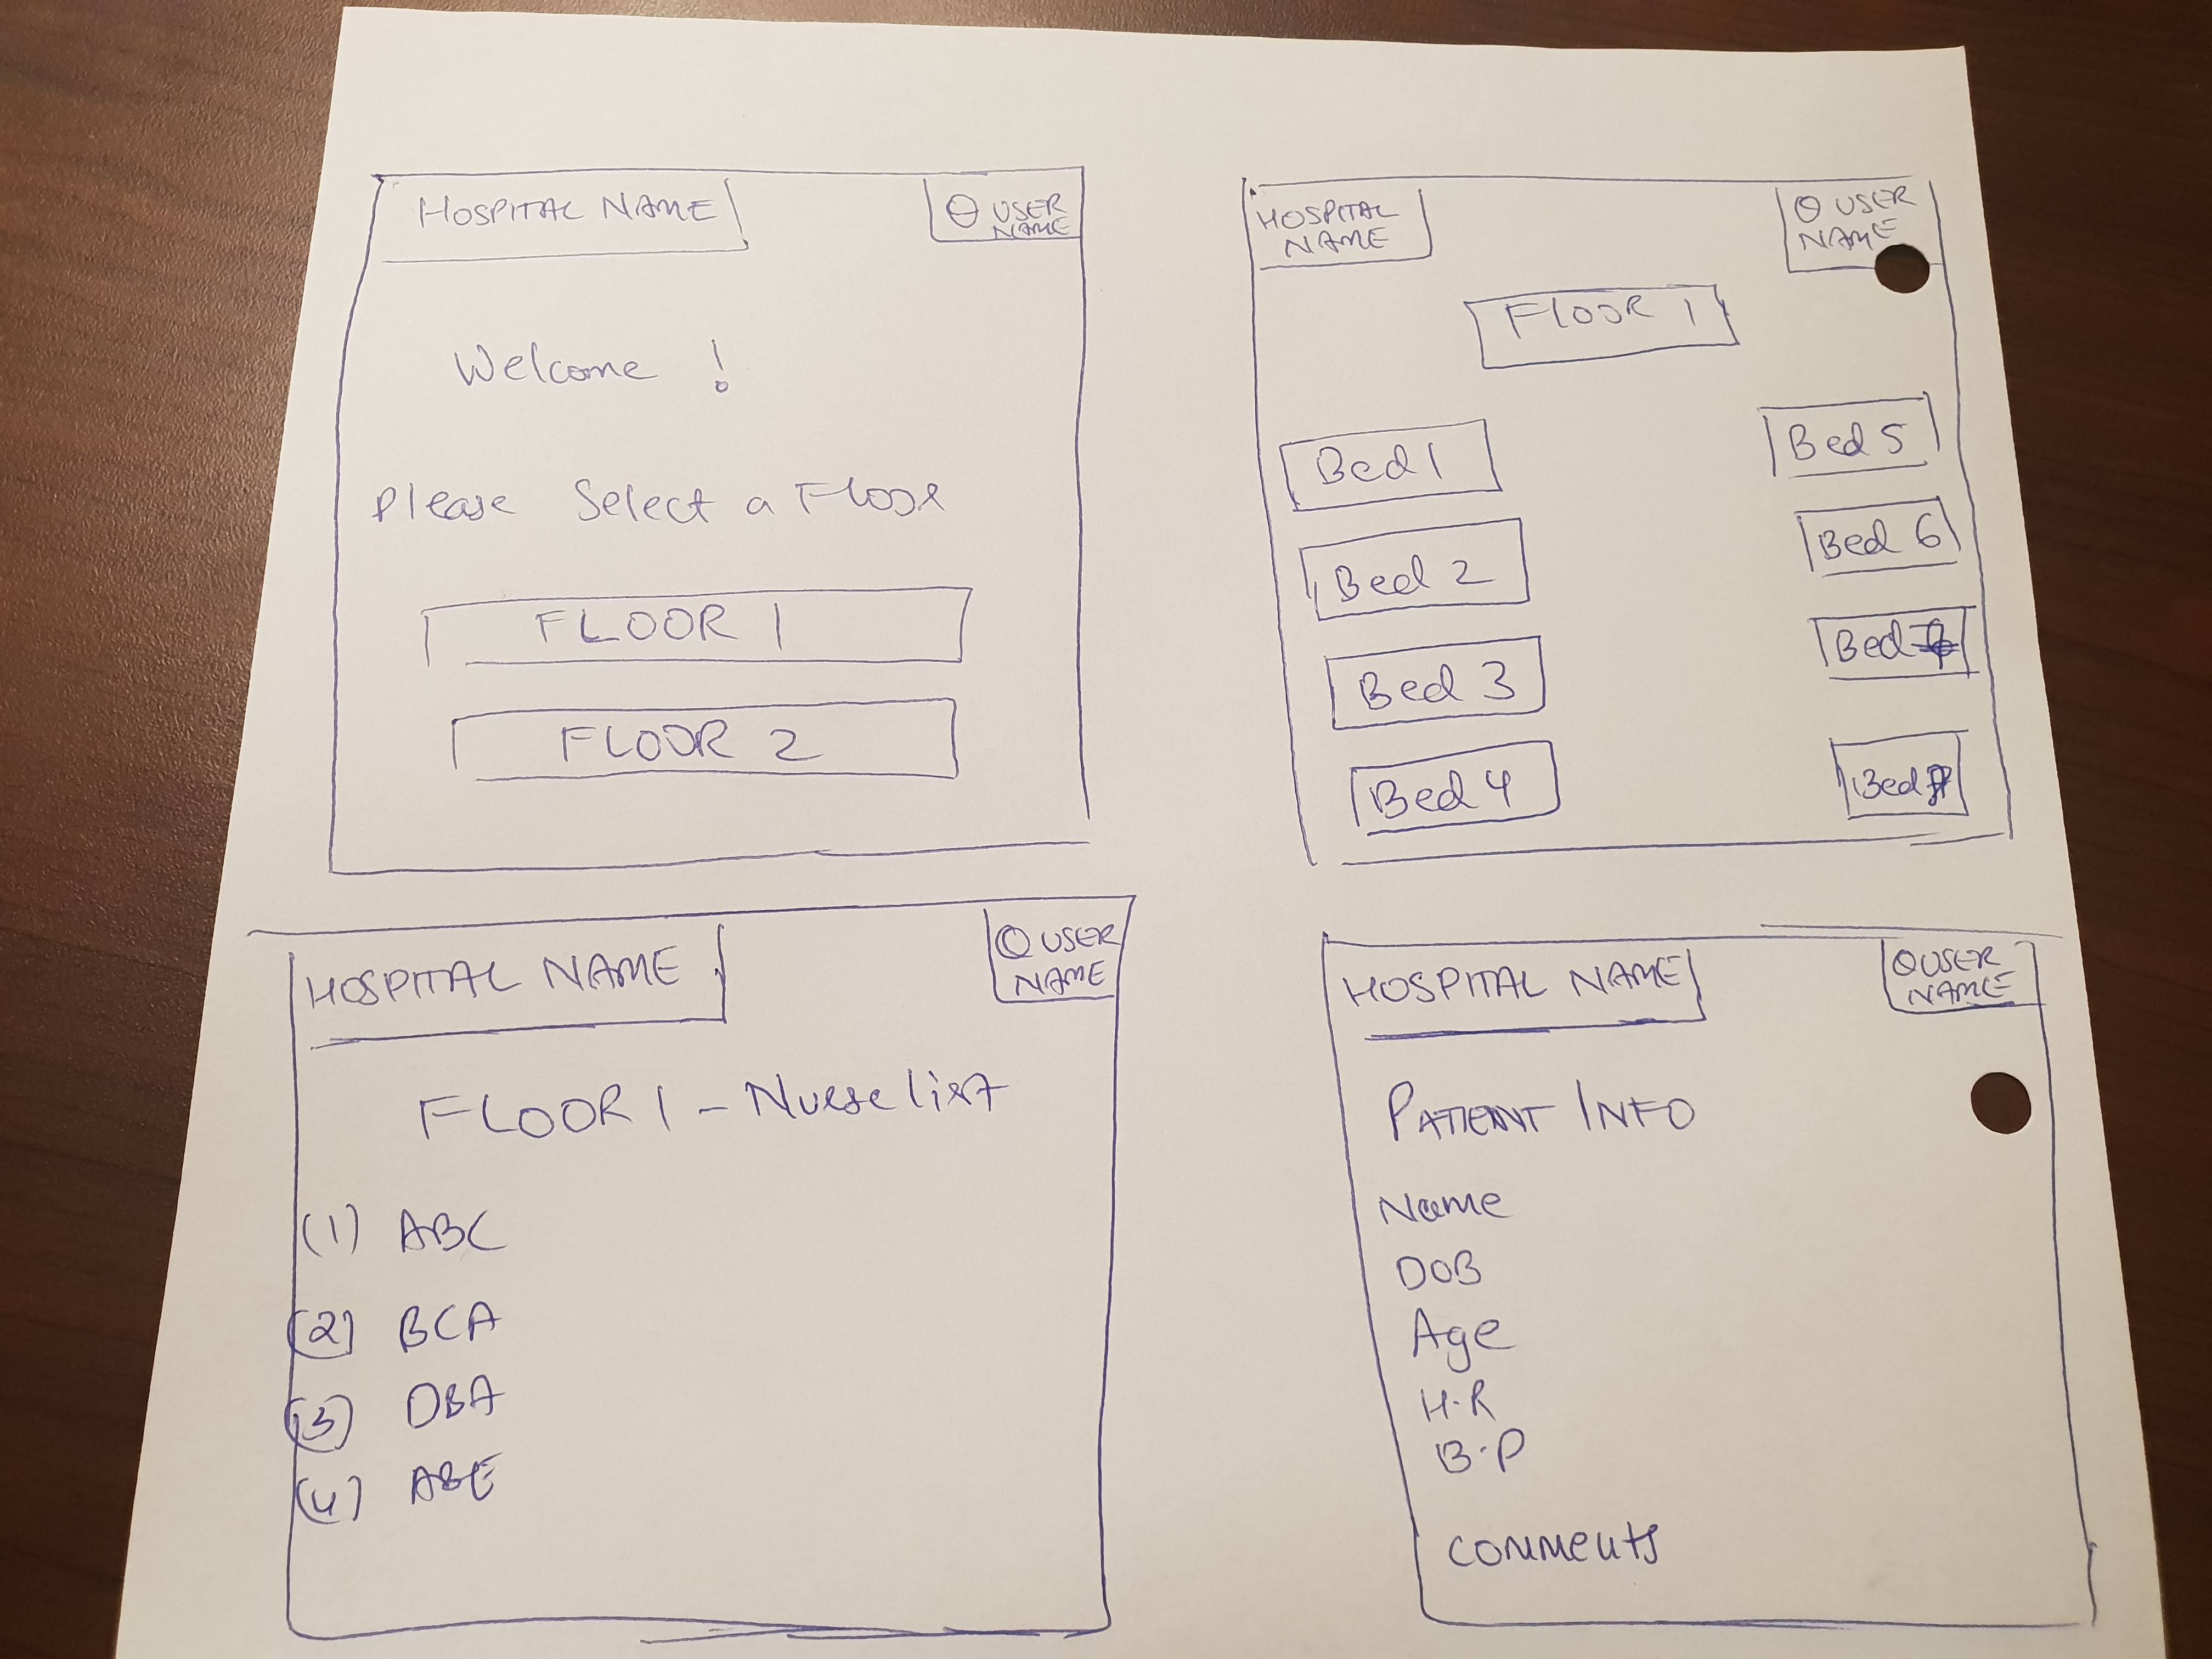 HOSPITAL NAME
USER
NAME
Welcome !
Please Select a Floor
FLOOR 1
FLOOR 2
HOSPITAL
NAME
USER
NAME
FLOOR 1
Bed 1
Bed 2
Bed 3
Bed 4
Bed 5
Bed 6
Bed
Bed
HOSPITAL NAME
USER
NAME
FLOOR 1 - Nurse list
(1) ABC
(2) BCA
(3) DBA
(4) ABE
HOSPITAL NAME
USER
NAME
PATIENT INFO
Name
DOB
Age
H.R
B.P
Comments